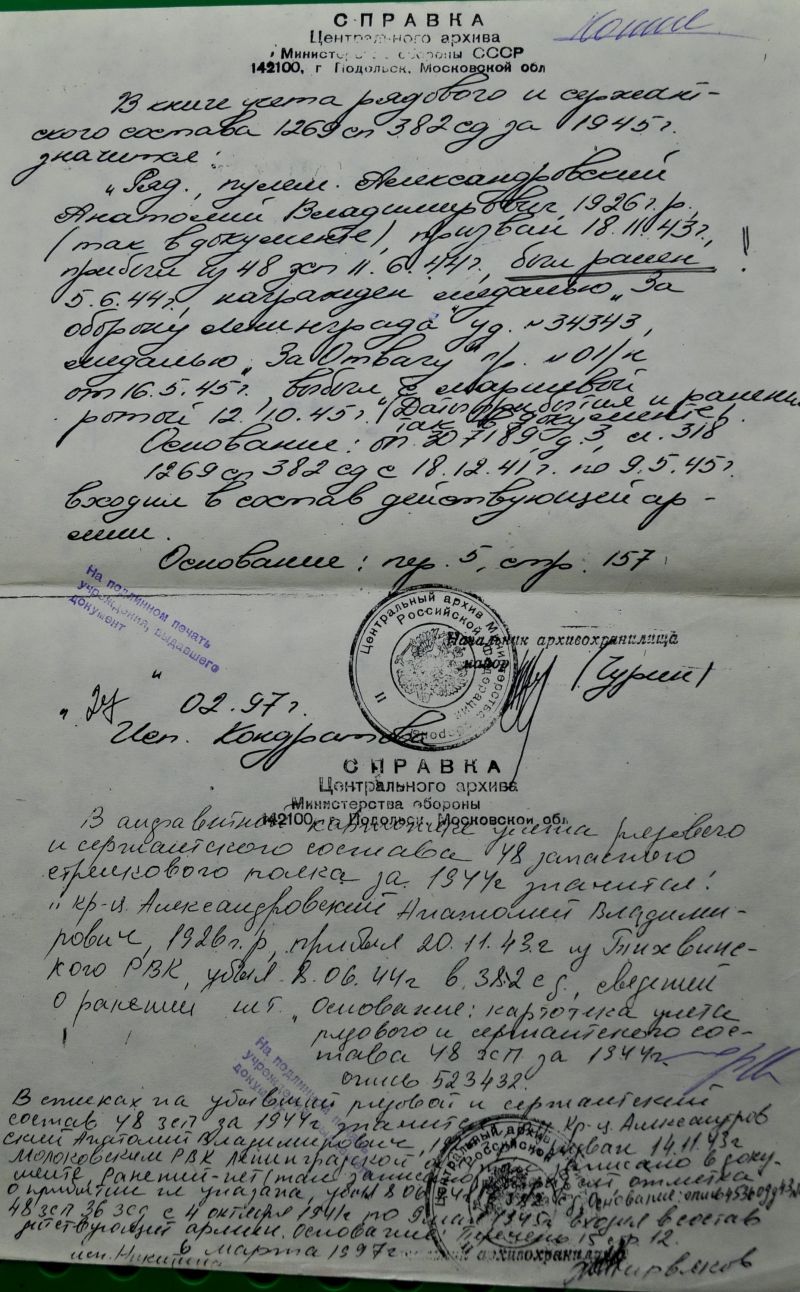 Копия
СПРАВКА
Центрального архива
Министерства обороны СССР
142100, г. Подольск, Московской обл
В книге учета рядового и сержант-
ского состава 1269 сп 382 сд за 1945 г.
значится:
"Ряд., пулем. Александровский
Анатолий Владимирович, 1926 г.р.
(так в документе), призван 18.11.43 г.,
прибыл из 48 зсп 11.6.44 г., был ранен !
5.6.44 г., награжден медалью "За
оборону Ленинграда" уд. №34343,
медалью "За Отвагу" пр. №01/н
от 16.5.45 г., выбыл с маршевой
ротой 12.10.45 г." (Даты прибытия и ранения
так в документе).
Основание: оп. 307189, д. 3, л. 318
1269 сп 382 сд с 18.12.41 г. по 9.5.45 г.
входил в состав действующей ар-
мии.
Основание: пер. 5, стр. 157
На подлинном печать
учреждения, выдавшего
документ
Центральный архив Министерства обороны
Российской Федерации
Начальник архивохранилища
майор (Чурин)
"27" 02.97 г.
Исп. Кондратова
СПРАВКА
Центрального архива
Министерства обороны
142100, г. Подольск, Московской обл.
В алфавитной карточке учета рядового
и сержантского состава 48 запасного
стрелкового полка за 1944 г значится:
"кр-ц Александровский Анатолий Владими-
рович, 1926 г.р, прибыл 20.11.43 г из Тихвинс-
кого РВК, убыл 8.06.44 г в 382 сд, сведений
о ранении нет." Основание: картотека учета
рядового и сержантского сос-
тава 48 зсп за 1944 г.
опись 523432.
На подлинном
В списках на убывший рядовой и сержантский
состав 48 зсп за 1944 г. значится: кр-ц Александров
ский Анатолий Владимирович, призван 14.11.43 г
Молоковским РВК Ленинградской записано в доку-
менте Ранений-нет (так записано отметка
о прибытии не указана, убыл 8.06 382 сд. Основание: опись
48 зсп 36 зсд с 4 октября 1941 г по 9 мая 1945 г. входил в состав
действующей армии. Основание: Перечень 15 стр 12.
исп. Никитина 6 марта 1997 г архивохранилища